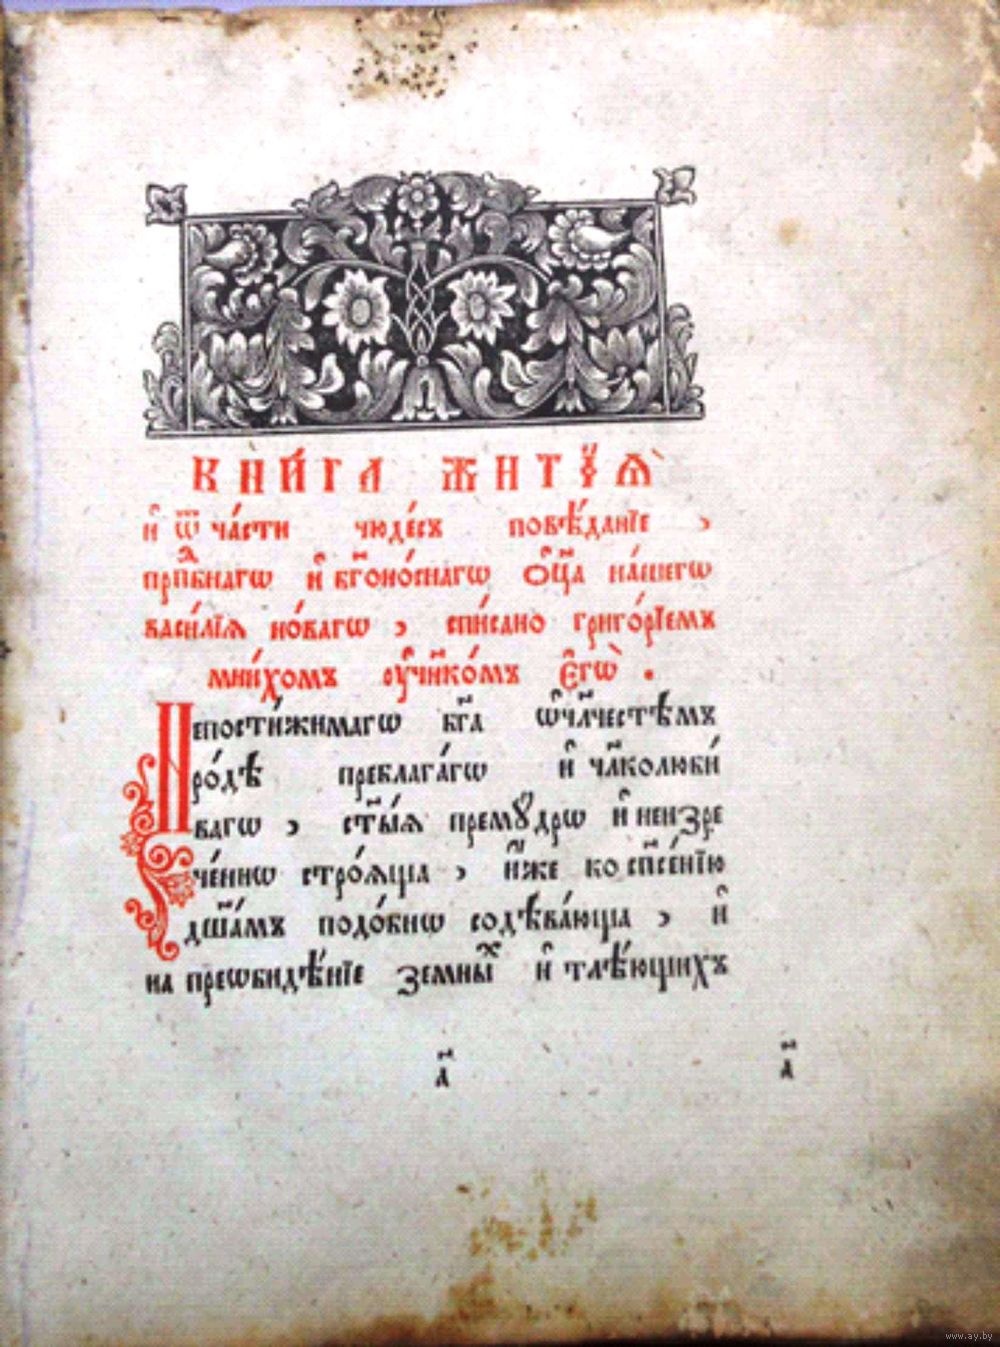 КНИ́ГА ЖИТЇѦ̀
и҆ ѿ ча́сти чюде́съ повѣ́данїе ,
прпⷣбнагѡ и҆ бг҃оно́снагѡ ѻ҆ц҃а на́шегѡ
васи́лїѧ но́вагѡ , спи́сано григо́рїемъ
мни́хомъ ᲂу҆чн҃ко́мъ є҆гѡ̀ .
Непости́жимагѡ бг҃а ѡ҆ чл҃честѣмъ
ро́дѣ преблага́гѡ и҆ чл҃колюби́
вагѡ , ст҃ы́ѧ премꙋ́дрѡ и҆ неизре
че́ннѡ стро́ѧща , ꙗ҆́же ко сп҃се́нїю
дш҃а́мъ подо́бнѡ содѣва́юща , и҆
на преѡбидѣ́нїе земны́хъ и҆ тлѣ́ющихъ
а҃ а҃
www.ay.by